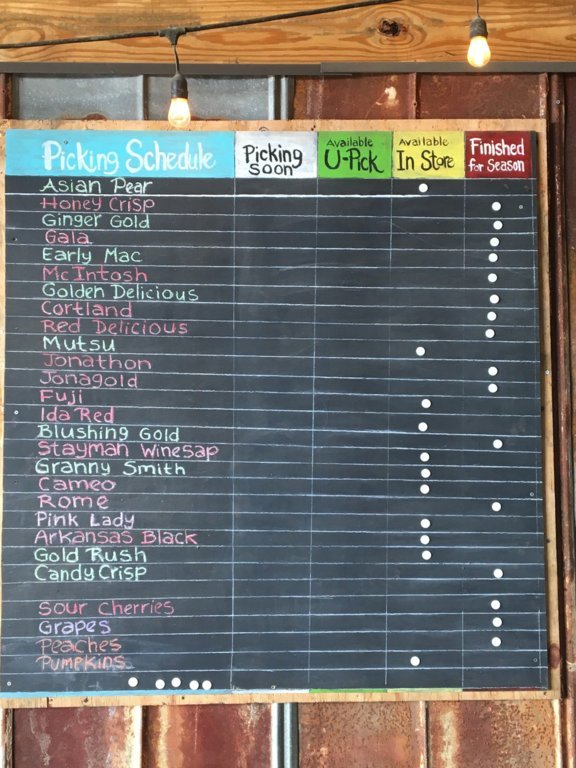 Picking Schedule Picking Soon Available U-Pick Available In Store Finished for Season
Asian Pear
Honey Crisp
Ginger Gold
Gala
Early Mac
McIntosh
Golden Delicious
Cortland
Red Delicious
Mutsu
Jonathon
Jonagold
Fuji
Ida Red
Blushing Gold
Stayman Winesap
Granny Smith
Cameo
Rome
Pink Lady
Arkansas Black
Gold Rush
Candy Crisp
Sour Cherries
Grapes
Peaches
Pumpkins